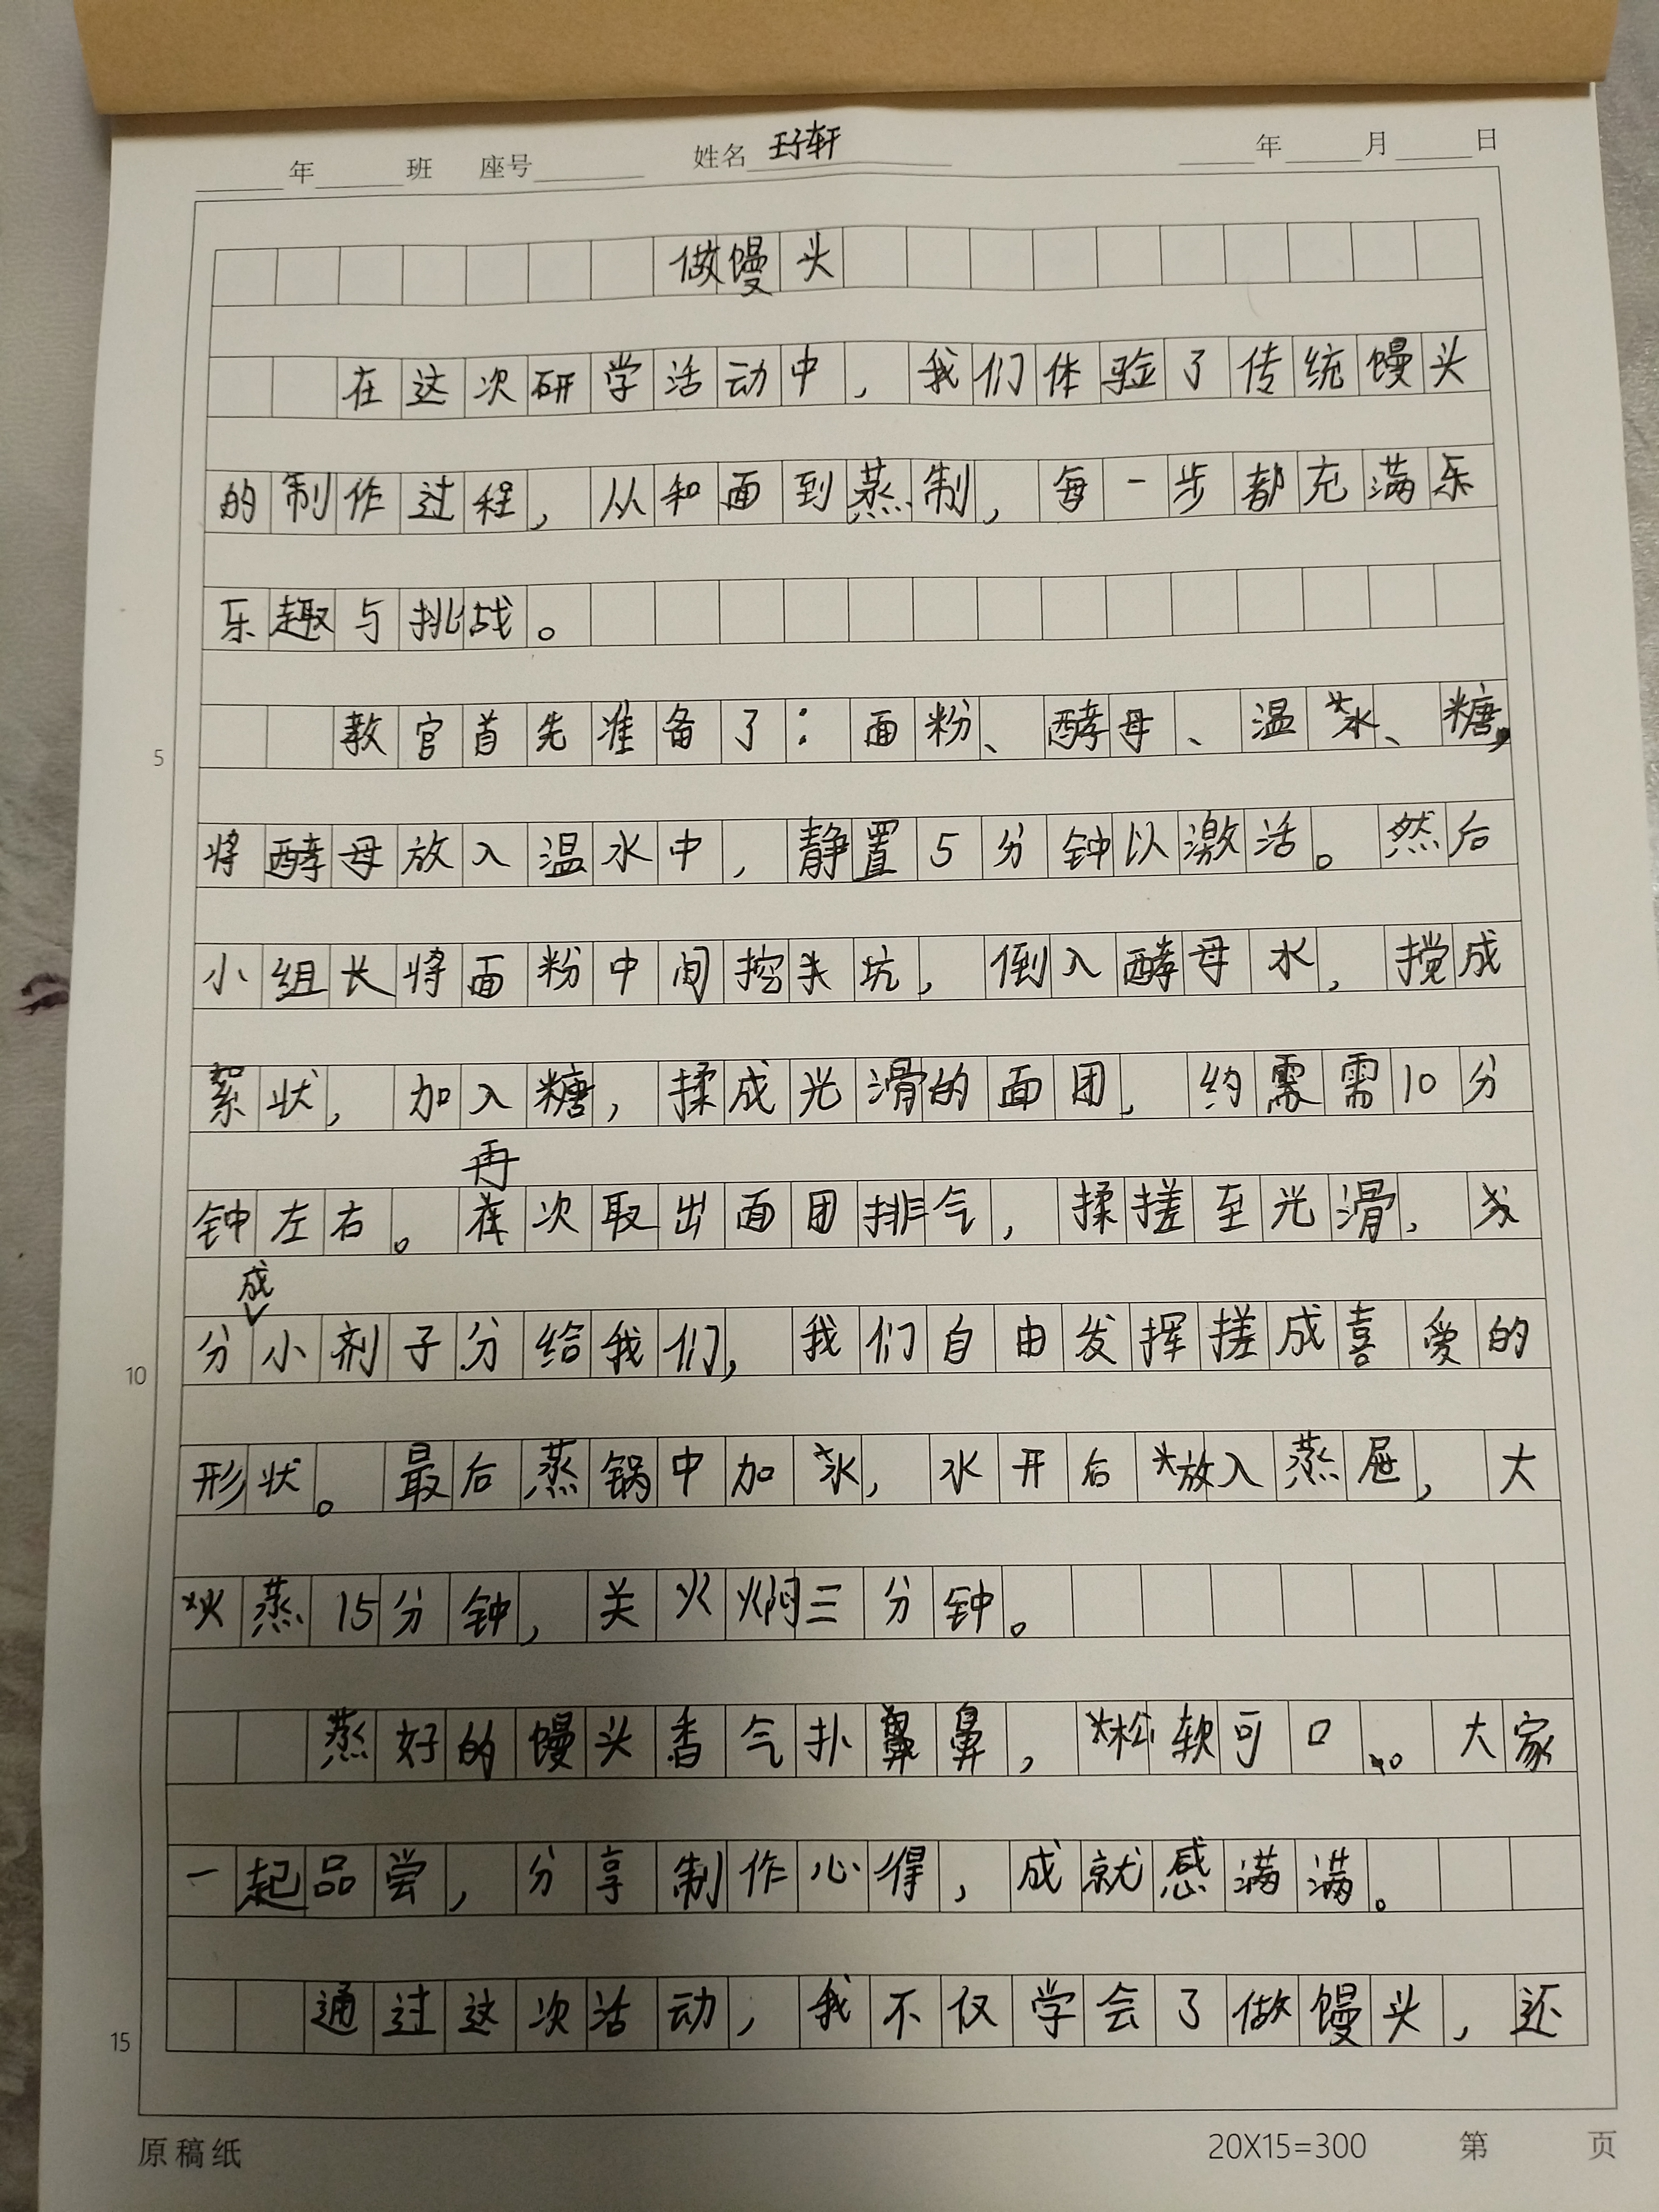 年 班 座号 姓名 王子轩 年 月 日
做馒头
在这次研学活动中，我们体验了传统馒头
的制作过程，从和面到蒸制，每一步都充满乐
乐趣与挑战。
教官首先准备了：面粉、酵母、温水、糖，
5
将酵母放入温水中，静置5分钟以激活。然后
小组长将面粉中间挖坑，倒入酵母水，搅成
絮状，加入糖，揉成光滑的面团，约需需10分
再
钟左右。次取出面团排气，揉搓至光滑，
成
分小剂子分给我们，我们自由发挥搓成喜爱的
10
形状。最后蒸锅中加水，水开后放入蒸屉，大
火蒸15分钟，关火焖三分钟。
蒸好的馒头香气扑鼻鼻，松软可口。大家
一起品尝，分享制作心得，成就感满满。
通过这次活动，我不仅学会了做馒头，还
15
原稿纸 20X15=300 第 页